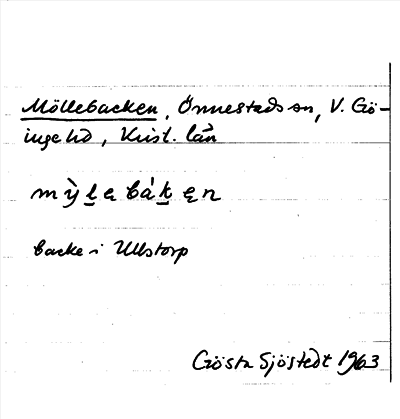 Möllebacken, Önnestads sn, V. Gö-
inge hd, Krist. län
mỳl̠ebák̠en
backe i Ullstorp
Gösta Sjöstedt 1963